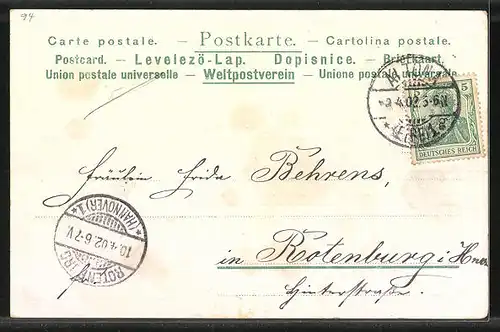 94
Carte postale. – Postkarte. – Cartolina postale.
Postcard. – Levelező-Lap. Dopisnice. – Briefkaart.
Union postale universelle – Weltpostverein – Unione postale universale
5
DEUTSCHES REICH
4.02.5-6N
Fräulein Frida Behrens,
ROTENBURG
10.4.02.6-7V
* (HANNOVER) 1 *
in Rotenburg i/Hann
Hinterstraße.